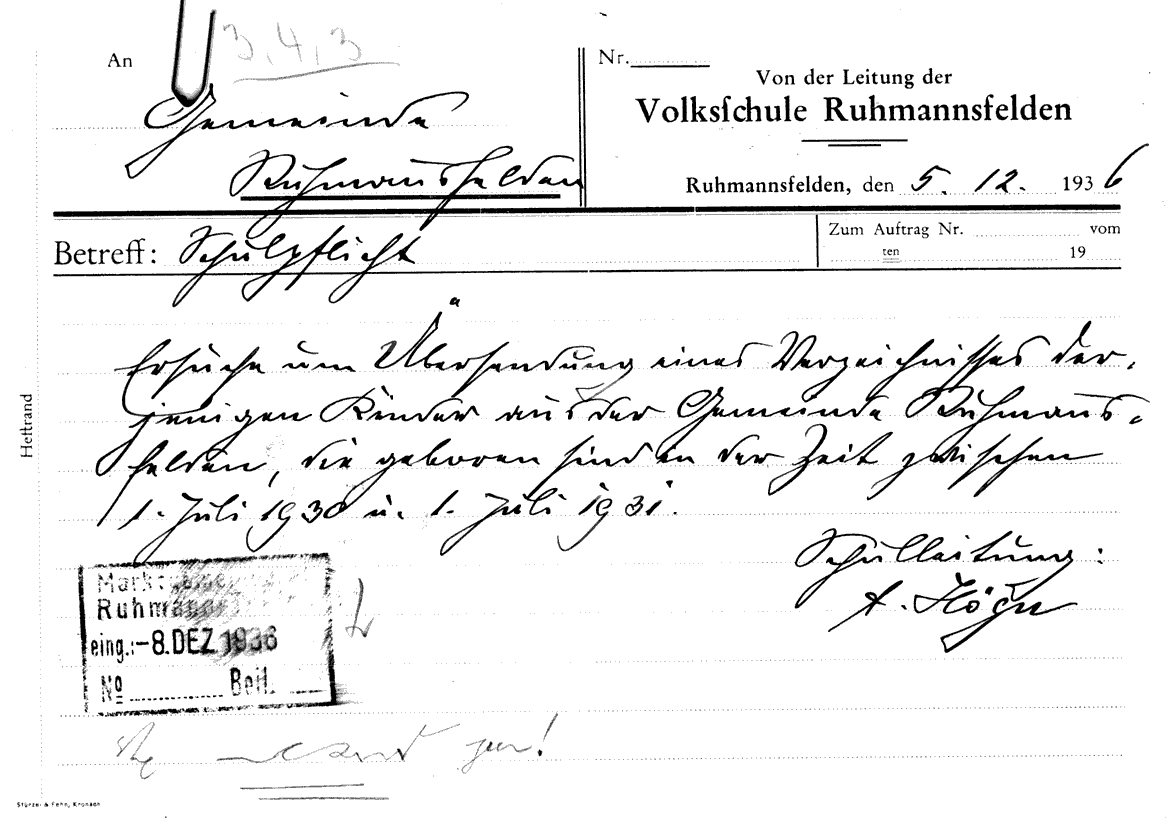 3, 4, 3
An
Gemeinde
Ruhmansfelden
Nr.
Von der Leitung der
Volksſchule Ruhmannsfelden
Ruhmannsfelden, den 5. 12. 1936
Betreff: Schulpflicht
Zum Auftrag Nr. vom
ten 19
Ersuche um Übersendung eines Verzeichnisses der-
jenigen Kinder aus der Gemeinde Ruhmans-
felden, die geboren sind in der Zeit zwischen
1. Juli 1930 u. 1. Juli 1931.
Schulleitung:
A. Högn
Heftrand
Markt
Ruhmanns
eing.: -8. DEZ 1936
Nº Beil.
Stürzel & Fehn, Kronach